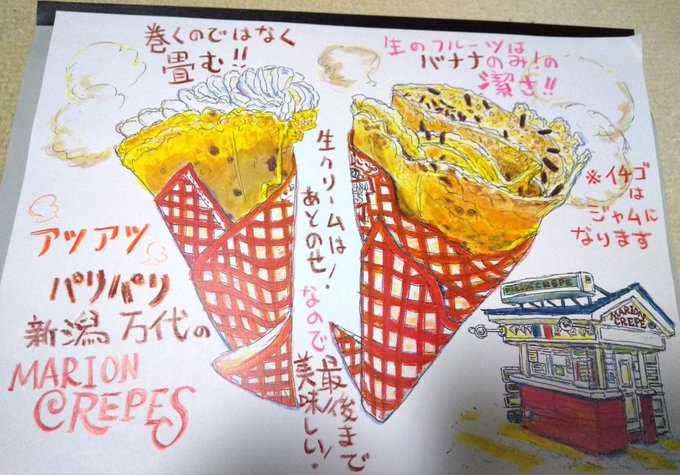 巻くのではなく
畳む!!
生のフルーツは
バナナのみ!の
潔さ!!
※イチゴ
は
ジャムに
なります
生クリームは!
あとのせ!
なので
最後まで
美味しい!
アツアツ
パリパリ
新潟 万代の
MARION
CREPES
MARION CREPE
MARION
CREPE